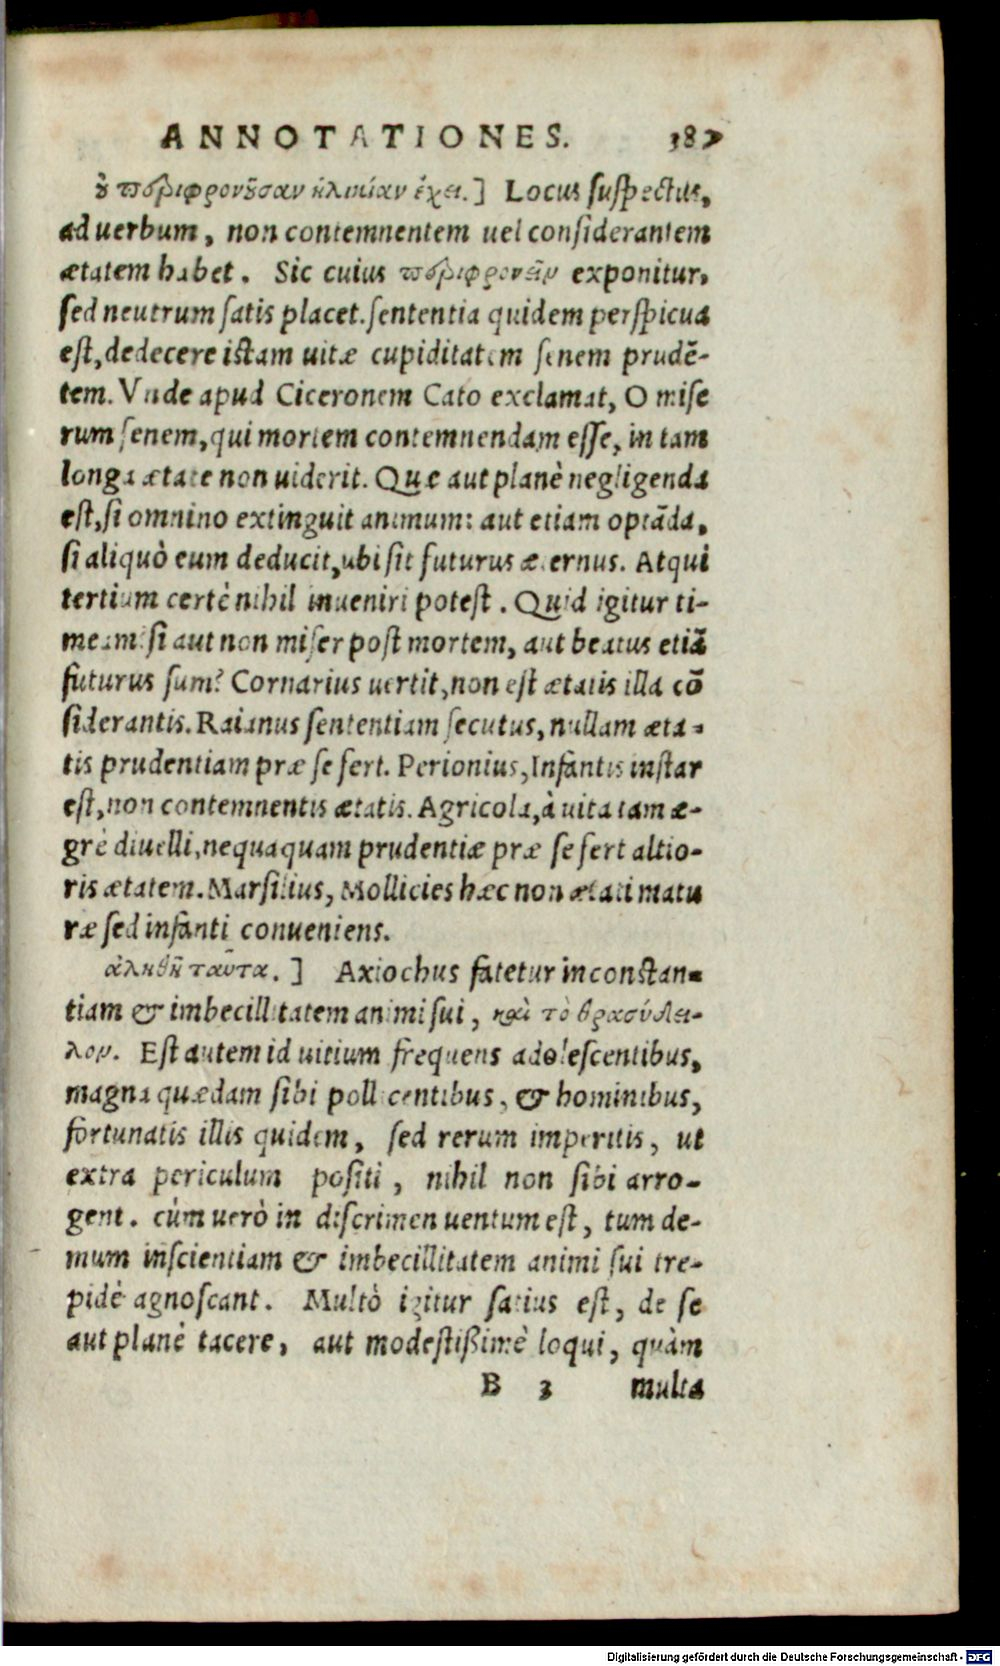 ANNOTATIONES. 387
ȣ̓ περιφρονȣ͂σαν ἡλικίαν ἔχει.] Locus suspectus,
ad uerbum, non contemnentem uel considerantem
ætatem habet. Sic cuius περιφρονεῖν exponitur,
sed neutrum satis placet. sententia quidem perspicua
est, dedecere istam uitæ cupiditatem senem prudē-
tem. Vnde apud Ciceronem Cato exclamat, O mise
rum senem, qui mortem contemnendam esse, in tam
longa ætate non uiderit. Quæ aut planè negligenda
est, si omnino extinguit animum: aut etiam optāda,
si aliquò eum deducit, ubi sit futurus æternus. Atqui
tertium certè nihil inueniri potest. Quid igitur ti-
meam si aut non miser post mortem, aut beatus etiā
futurus sum? Cornarius uertit, non est ætatis illa cō
siderantis. Raianus sententiam secutus, nullam æta-
tis prudentiam præ se fert. Perionius, Infantis instar
est, non contemnentis ætatis. Agricola, à uita tam æ-
grè diuelli, nequaquam prudentiæ præ se fert altio-
ris ætatem. Marsilius, Mollicies hæc non ætati matu
ræ sed infanti conueniens.
ἀληθῆ ταῦτα.] Axiochus fatetur inconstan-
tiam & imbecillitatem animi sui, καὶ τὸ θρασύδει-
λον. Est autem id uitium frequens adolescentibus,
magna quædam sibi pollicentibus, & hominibus,
fortunatis illis quidem, sed rerum imperitis, ut
extra periculum positi, nihil non sibi arro-
gent. cùm uerò in discrimen uentum est, tum de-
mum inscientiam & imbecillitatem animi sui tre-
pidè agnoscant. Multò igitur satius est, de se
aut planè tacere, aut modestißimè loqui, quàm
B 3 multa
Digitalisierung gefördert durch die Deutsche Forschungsgemeinschaft - DFG